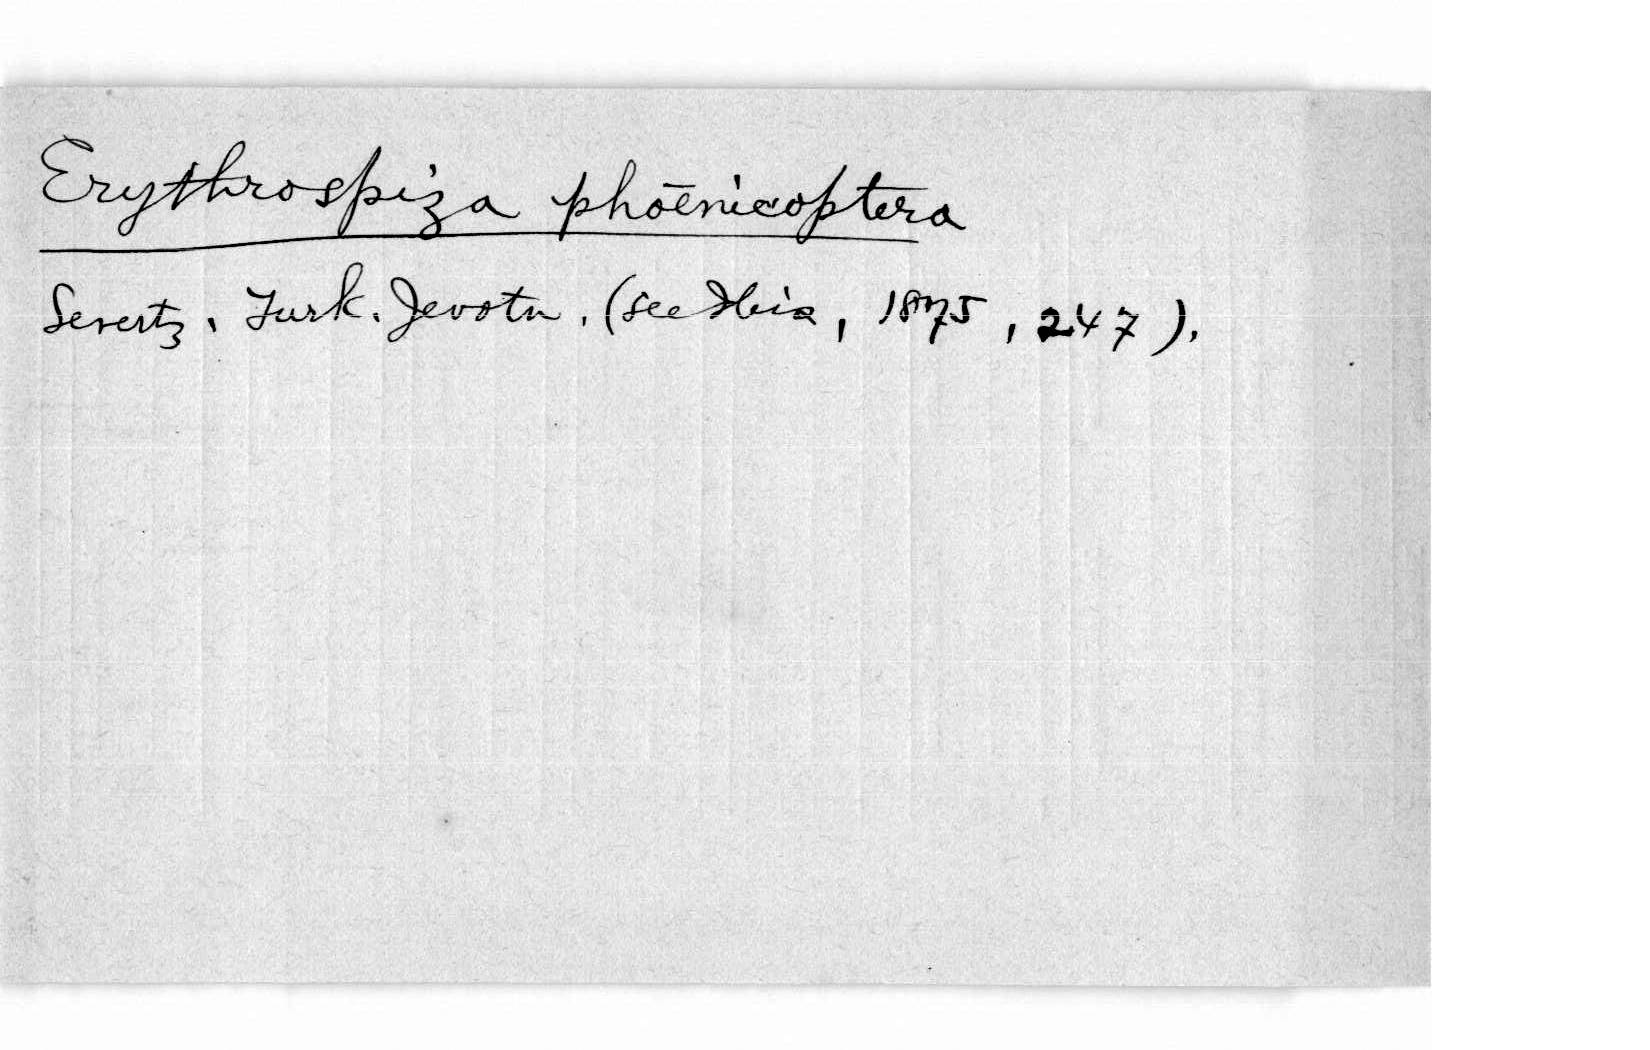 Erythrospiza phoenicoptera
Severtz. Turk. Jevotn. (see Ibis, 1875, 247).